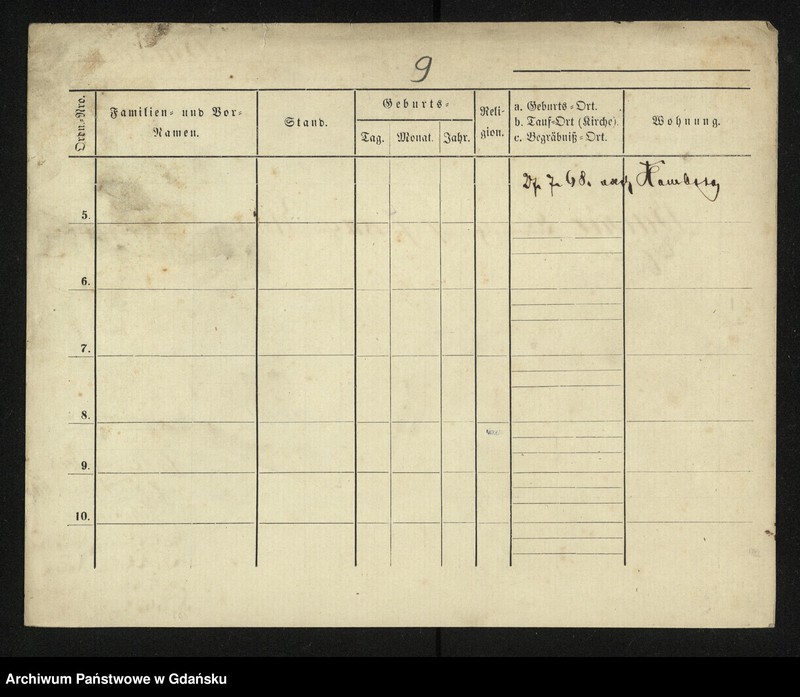 9
Ordn.-Nro.
Familien- und Vor-
Namen.
Stand.
Geburts-
Tag.
Monat.
Jahr.
Reli-
gion.
a. Geburts-Ort.
b. Tauf-Ort (Kirche)
c. Begräbniß-Ort.
Wohnung.
7. 68. nach Hamburg
5.
6.
7.
8.
9.
10.
Archiwum Państwowe w Gdańsku